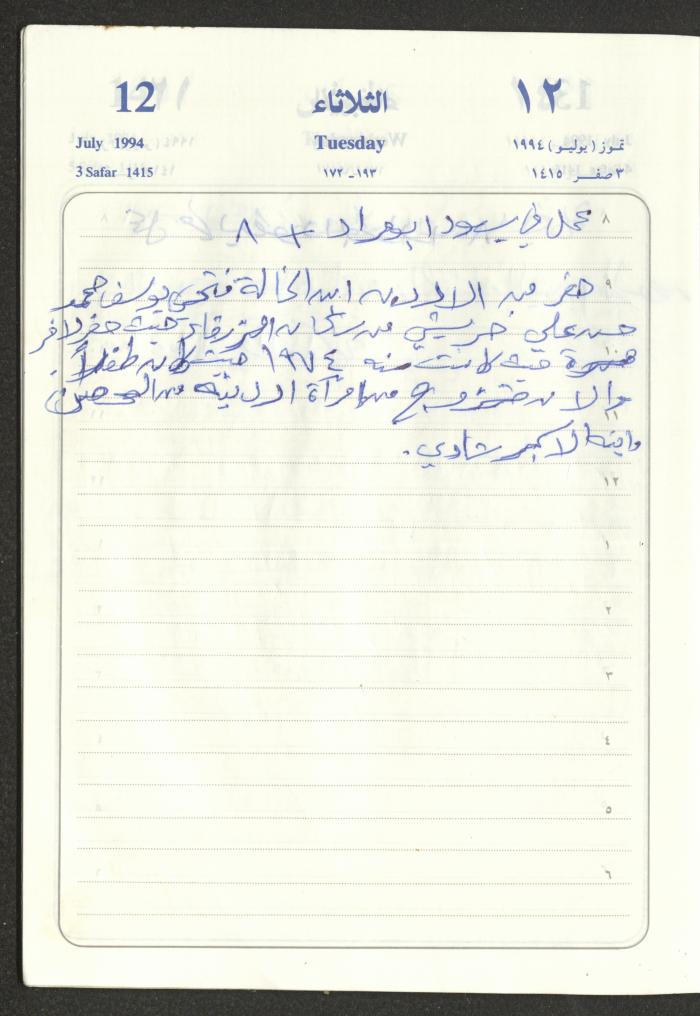 12 الثلاثاء ١٢
July 1994 Tuesday تموز (يوليو) ١٩٩٤
3 Safar 1415 ١٩٣-١٧٢ ٣ صفر ١٤١٥
٨ عمل في يسود ابو مراد + ٨
٩ حضر من الاردن ابن الخالة فتحي يوسف محمد
حسن علي من سكان الزرقاء حيث حضر لاخر
كانت سنة ١٩٧٤ حيث كان طفلاً
والان متزوج من امرأة اردنية من الحصن
١١
وابنه الاكبر شادي.
١٢
١
٢
٣
٤
٥
٦